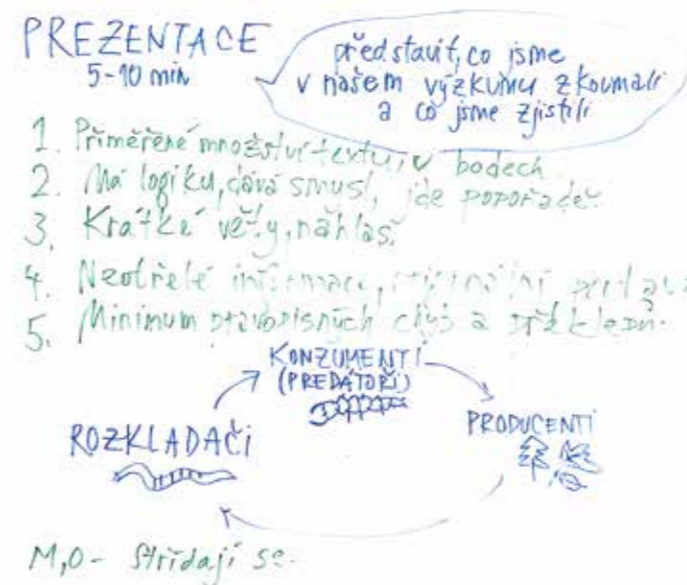 PREZENTACE
5-10 min
představit, co jsme
v našem výzkumu zkoumali
a co jsme zjistili
1. Přiměřené množství textu, v bodech.
2. Má logiku, dává smysl, jde popořadě.
3. Krátké věty, nahlas.
4. Neotřelé informace,
5. Minimum pravopisných chyb a překlepů.
KONZUMENTI
(PREDÁTOŘI)
PRODUCENTI
ROZKLADAČI
M,O - Střídají se.